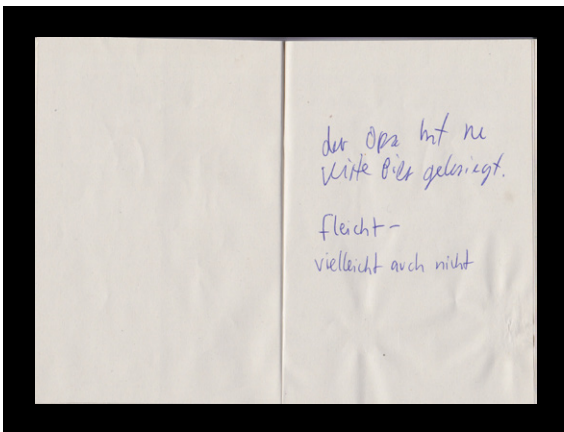 der Opa hat ne
Kiste Bier gekriegt.
fleicht –
vielleicht auch nicht